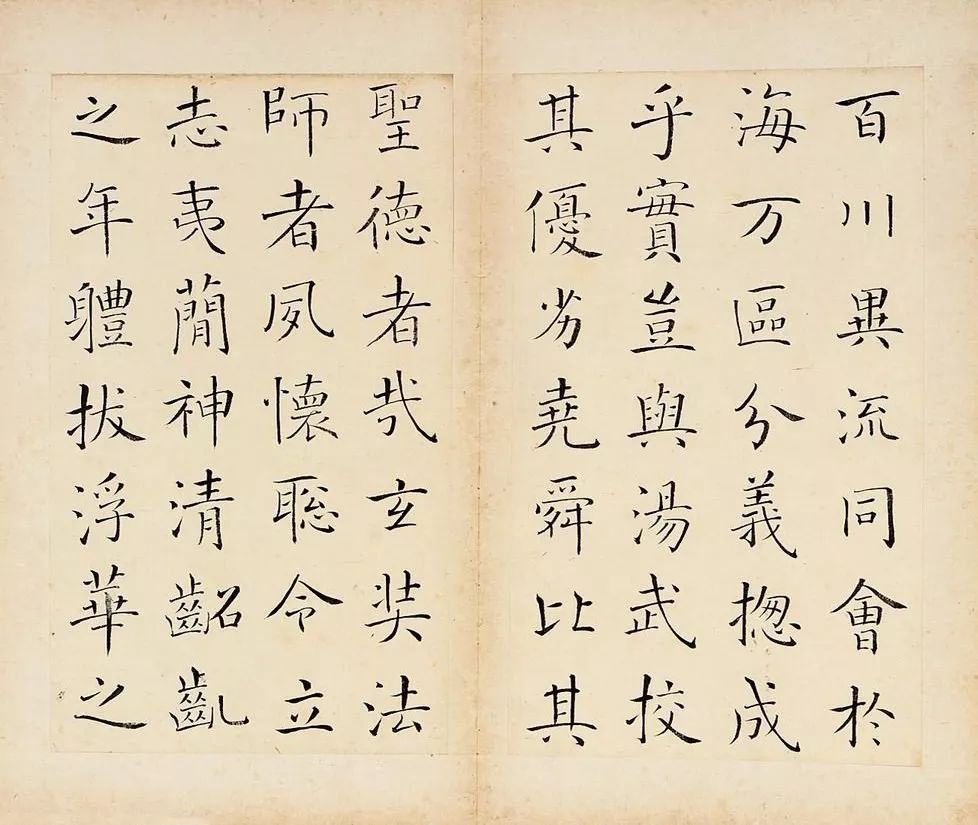 百川異流同會於
海万區分義揔成
乎實豈與湯武校
其優劣堯舜比其
聖德者㢤玄奘法
師者夙懷聡令立
志夷簡神清齠齓
之年體拔浮華之